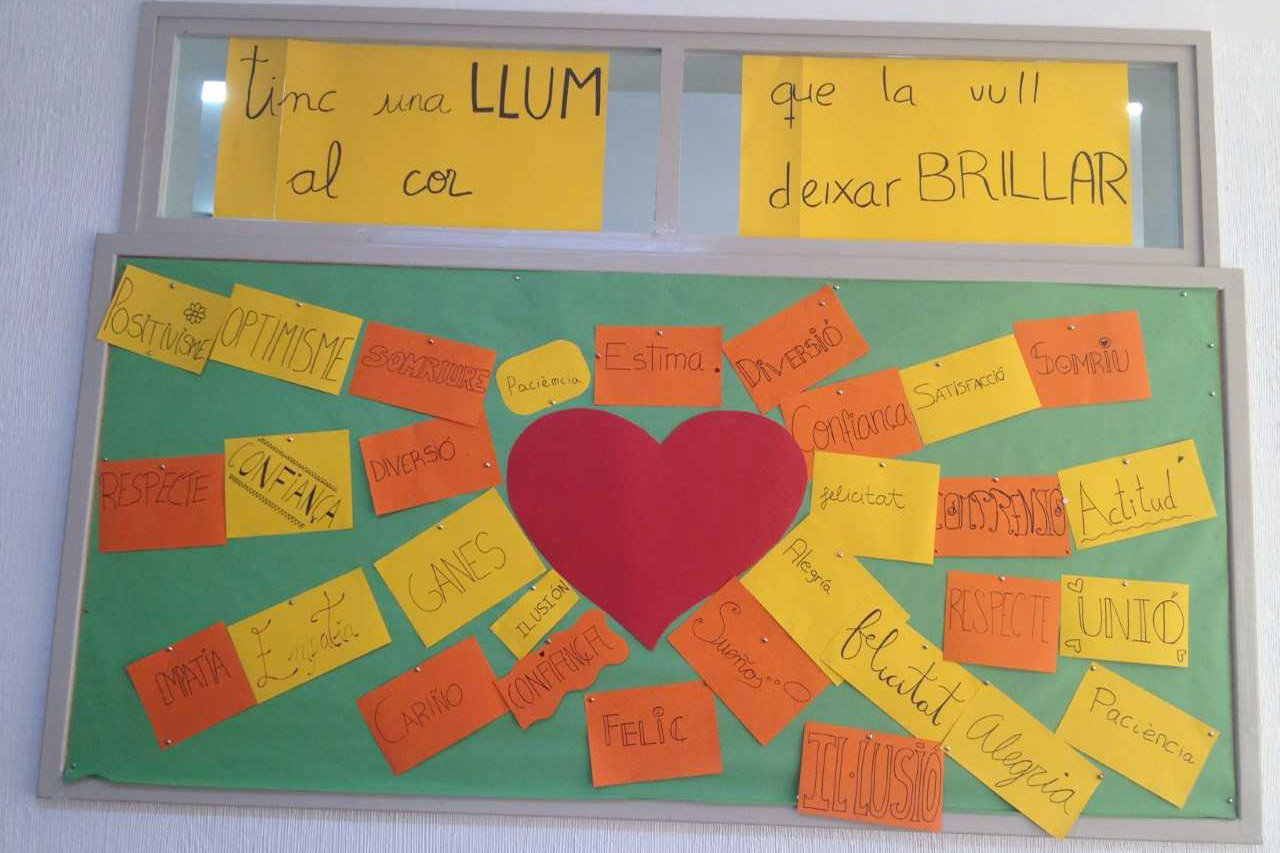 tinc una LLUM
al cor
que la vull
deixar BRILLAR
POSITIVISME
OPTIMISME
SOMRIURE
Paciència
Estima
DIVERSIÓ
Confiança
SATISFACCIÓ
SOMRIU
RESPECTE
CONFIANÇA
DIVERSIÓ
felicitat
COMPRENSIÓ
Actitud
GANES
ILUSIÓN
Alegría
RESPECTE
UNIÓ
EMPATÍA
Empatia
CARIÑO
CONFIANÇA
FELIC
Sueños...
felicitat
IL·LUSIÓ
Alegria
Paciència